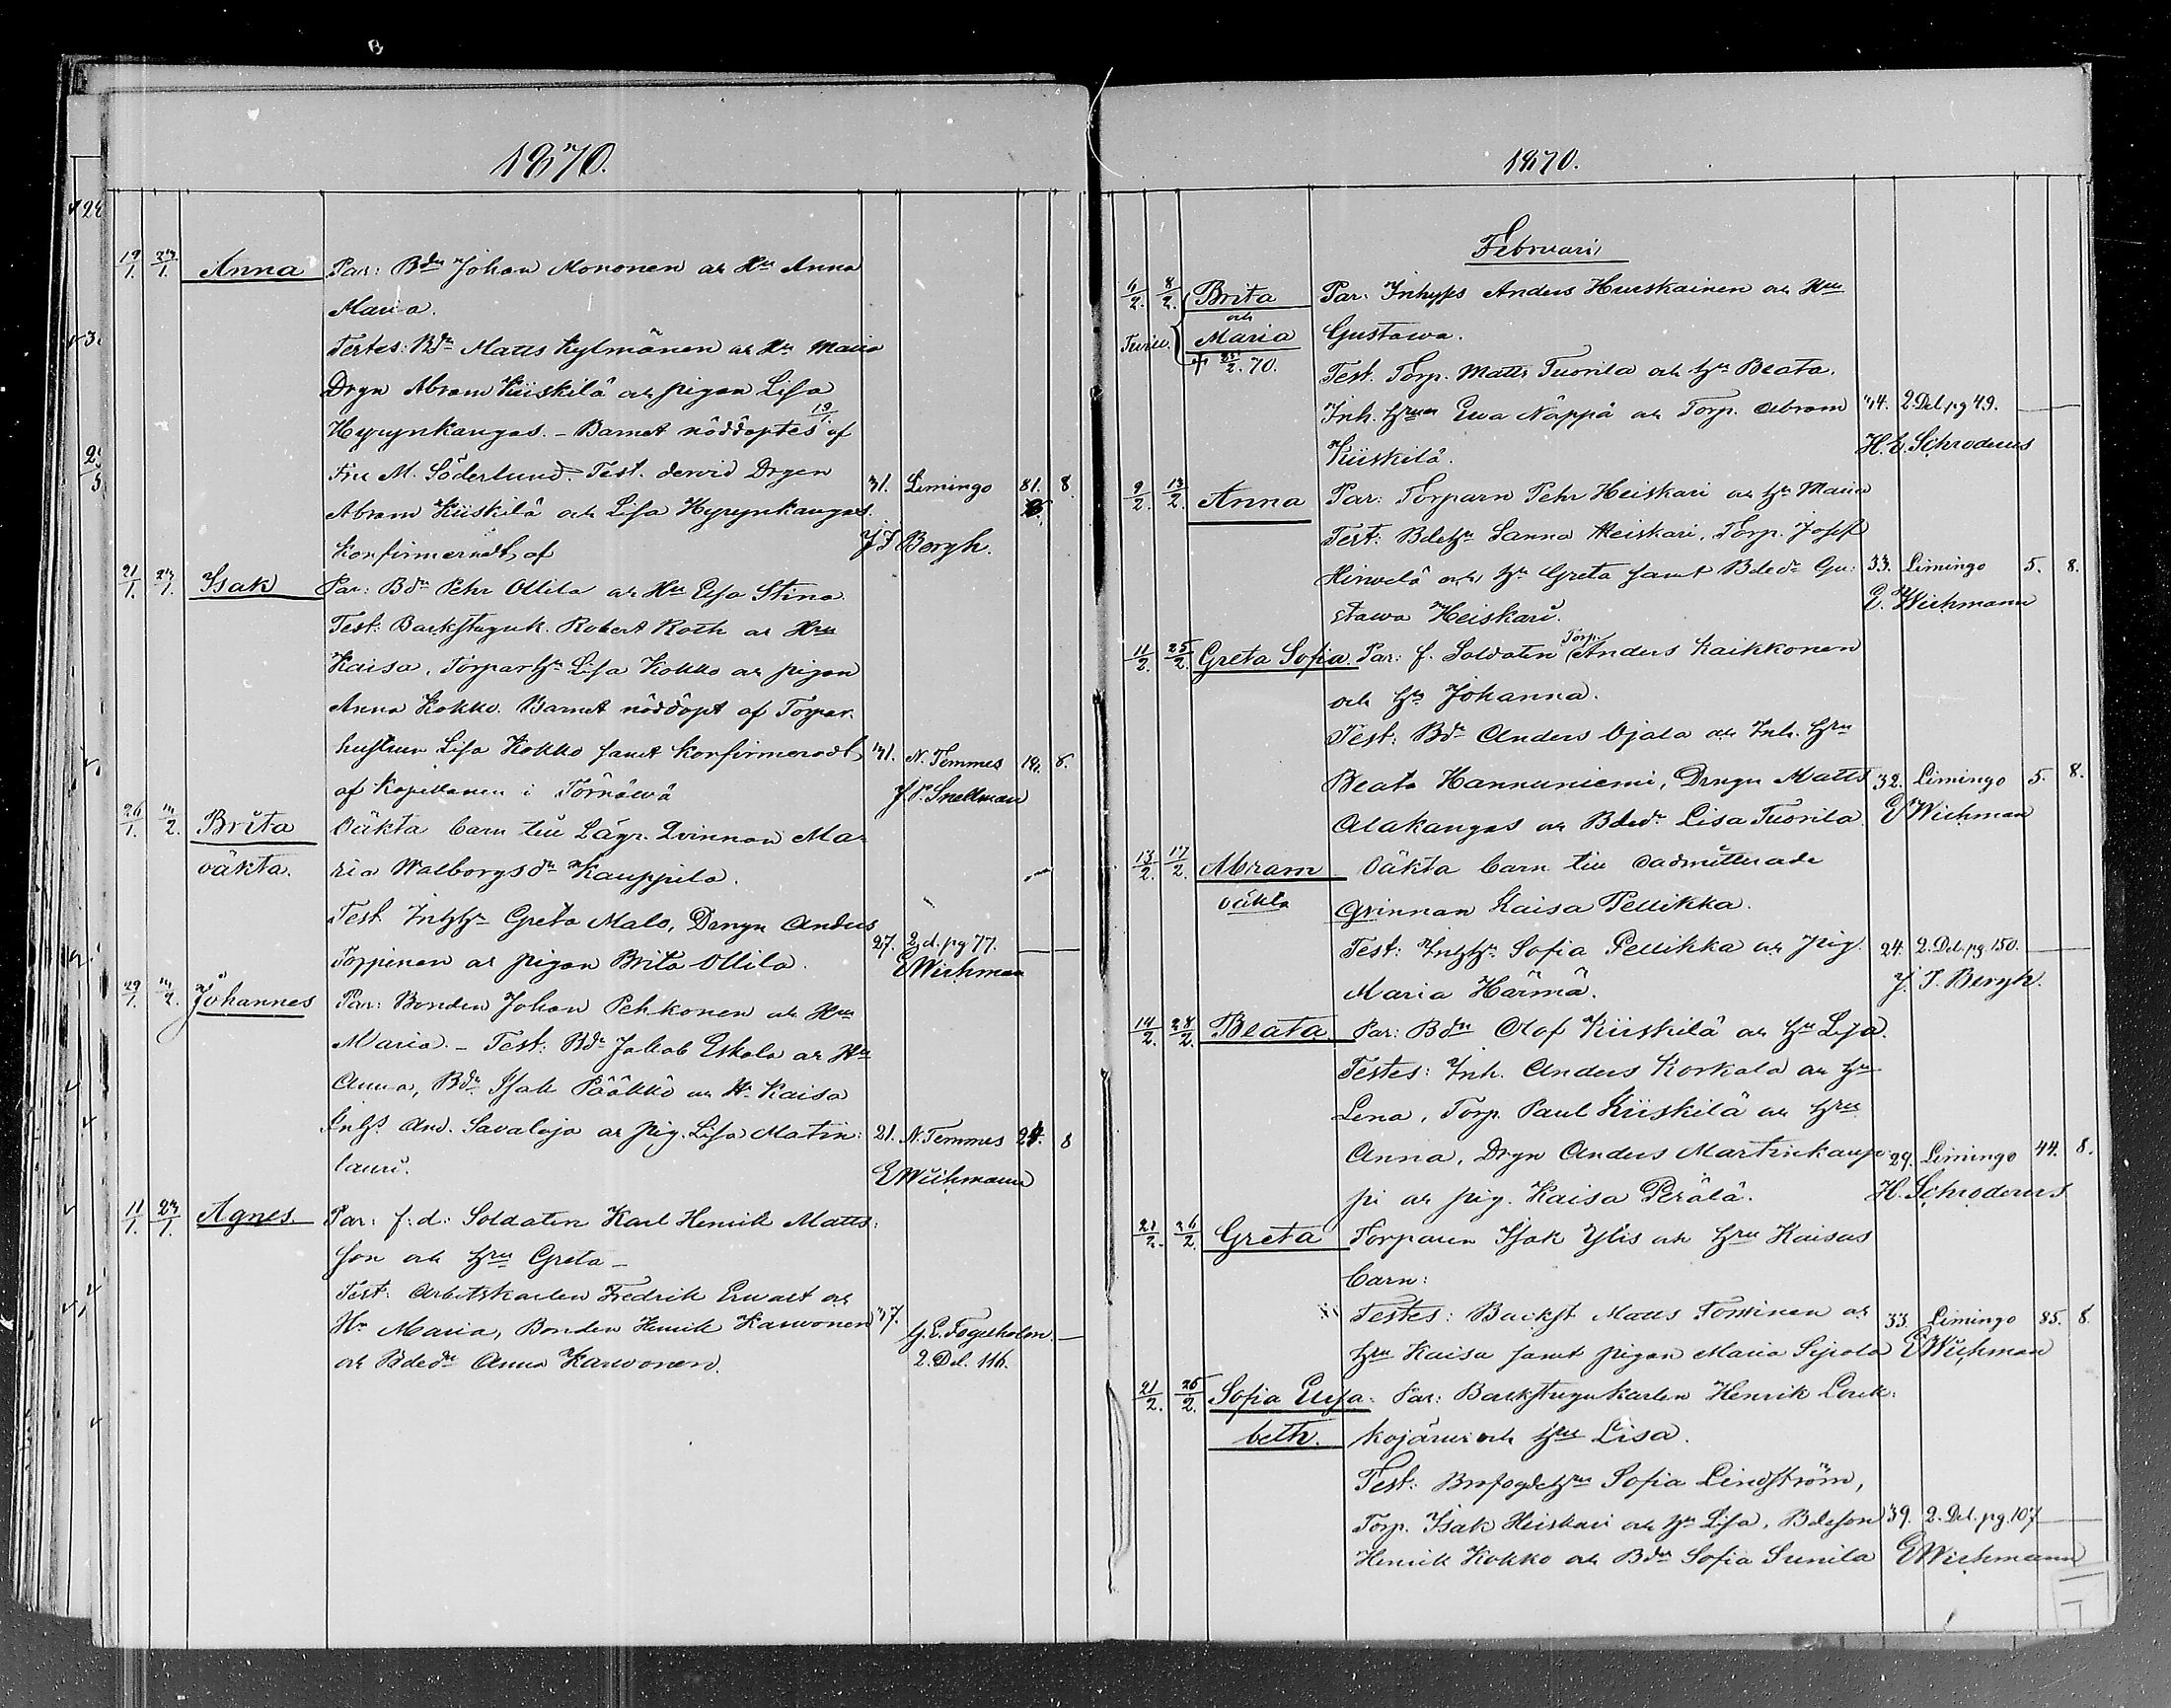 1870.
19/1. 23/1. Anna Par: Bdn Johan Mononen och Hu Anna
Maria.
Testes: Bdn Matts Kylmänen och Hu Maria
Drgn Abram Kiiskilä och pigan Lisa
Hyrynkangas. – Barnet nöddöptes 19/1. af
Fru M. Söderlund. Test. dervid Drgen
31. Limingo 81. 8.
Abram Kiiskilä och Lisa Hyrynkangas.
Konfirmeradt af J F Bergh.
21/1. 23/1. Isak Par: Bdn Pehr Ollila och Hu Elsa Stina
Test: Backstuguk. Robert Roth och Hru
Kaisa, Torparh. Lisa Kokko och pigan
Anna Kokko. Barnet nöddöpt af Torpar-
hustrun Lisa Kokko samt konfirmeradt 31. N. Temmes 19. 8.
af Kapellanen i Törnäwä J. F. Snellman
26/1. 2. Brita Oäkta barn till Lägr. Qvinnan Ma-
oäkta. ria Walborgsdr Kauppila.
Test. Inhhn Greta Malo, Drengn Anders
27. 2 d. pg 77.
Toppinen och pigan Brita Ollila. E Wichmann
29/1. 2. Johannes Par: Bonden Johan Pehkonen och Hru
Maria. – Test: Bdn Jakob Eskola och Hu
Anna, Bdn Isak Pääkkö och H. Kaisa
Inhs And. Savaloja och pig. Lisa Matin- 21. N. Temmes 24. 8
lauri. E Wichmann
11/1. 23/1. Agnes Par: f: d: Soldaten Karl Henrik Matts-
son och Hru Greta –
Test: Arbetskarlen Fredrik Erwast och
Hu Maria, Bonden Henrik Karvonen 37. G. E. Fogelholm.
och Bdedr Anna Karvonen. 2. Del. 116.
1870.
Februari
6/2. 8/2. Brita Par: Inhyss Anders Hurskainen och Hru
och
Maria Gustava.
† 2. 70.
Test. Torp. Matts Tuorila och Hu Beata.
Inh. Hrun Ewa Näppä och Torp. Abram 34. 2. Del pg 49.
Kiiskilä. H. E. Schroderus
9/2. 13/2. Anna Par: Torparn Pehr Heiskari och Hu Maria
Test: Bdeh Sanna Heiskari, Torp. Josef
Hirvelä och Hu Greta samt Bdedr Gu- 33. Limingo 5. 8.
stava Heiskari. E. Wichmann
11/2. 25/2. Greta Sofia. Par: f. Soldaten Torp. Anders Kaikkonen
och Hu Johanna.
Test: Bdn Anders Ojala och Inh. Hru
Beata Hannuniemi, Drngn Matts 32. Limingo 5. 8.
Alakangas och Bdedr Lisa Tuorila. E Wichmann
13/2. 17/2. Abram Oäkta barn till oadmitterade
oäkta qvinnan Kaisa Pellikka.
Test: Inhhn Sofia Pellikka och pig. 24. 2. Del. pg 150.
Maria Härmä. J. F. Bergh.
14/2. 28/2. Beata Par: Bdn Olof Kiiskilä och Hu Lisa.
Testes: Inh. Anders Korkala och Hu
Lena, Torp. Paul Kiiskilä och Hru
Anna, Drgn Anders Martinkaup- 29. Limingo 44. 8.
pi och pig. Kaisa Perälä. H. Schroderus
21/2. 26/2. Greta Torparen Isak Ylis och Hru Kaisas
barn:
Testes: Backst Matts Tominen och 33. Limingo 85. 8.
Hru Kaisa samt pigan Maria Sipola E Wichmann
21/2. 25/2. Sofia Elisa- Par: Backstugukarlen Henrik Louk-
beth. kojärvi och Hru Lisa.
Test: Brofogdeh Sofia Lindström,
Torp. Isak Heiskari och Hu Lisa, Bdeson 39. 2. Del. pg. 107
Henrik Kokko och Bdr Sofia Sunila E Wichmann